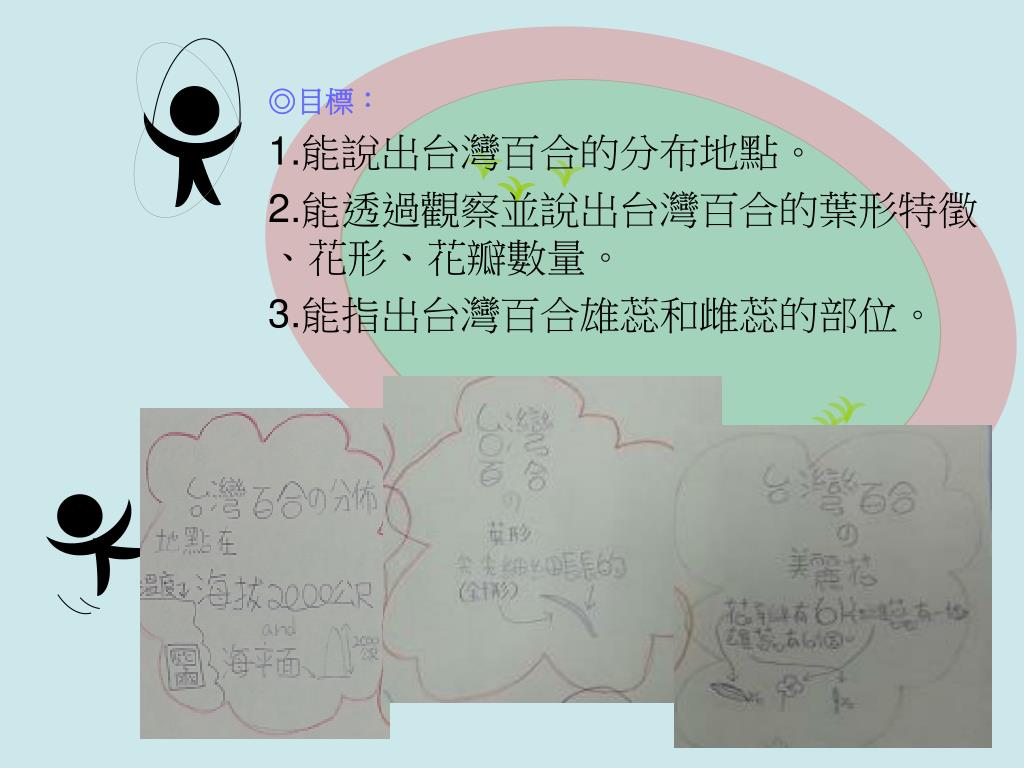 ◎目標：
1.能說出台灣百合的分布地點。
2.能透過觀察並說出台灣百合的葉形特徵
、花形、花瓣數量。
3.能指出台灣百合雄蕊和雌蕊的部位。
台灣百合の分佈
地點在
溫度
海拔2000公尺
and
海平面、
2000
公尺
台灣
百合
の
葉形
尖尖細細長長的
(針形)
台灣百合
の
美麗花
花瓣有6片
雌蕊有一個
雄蕊有6個